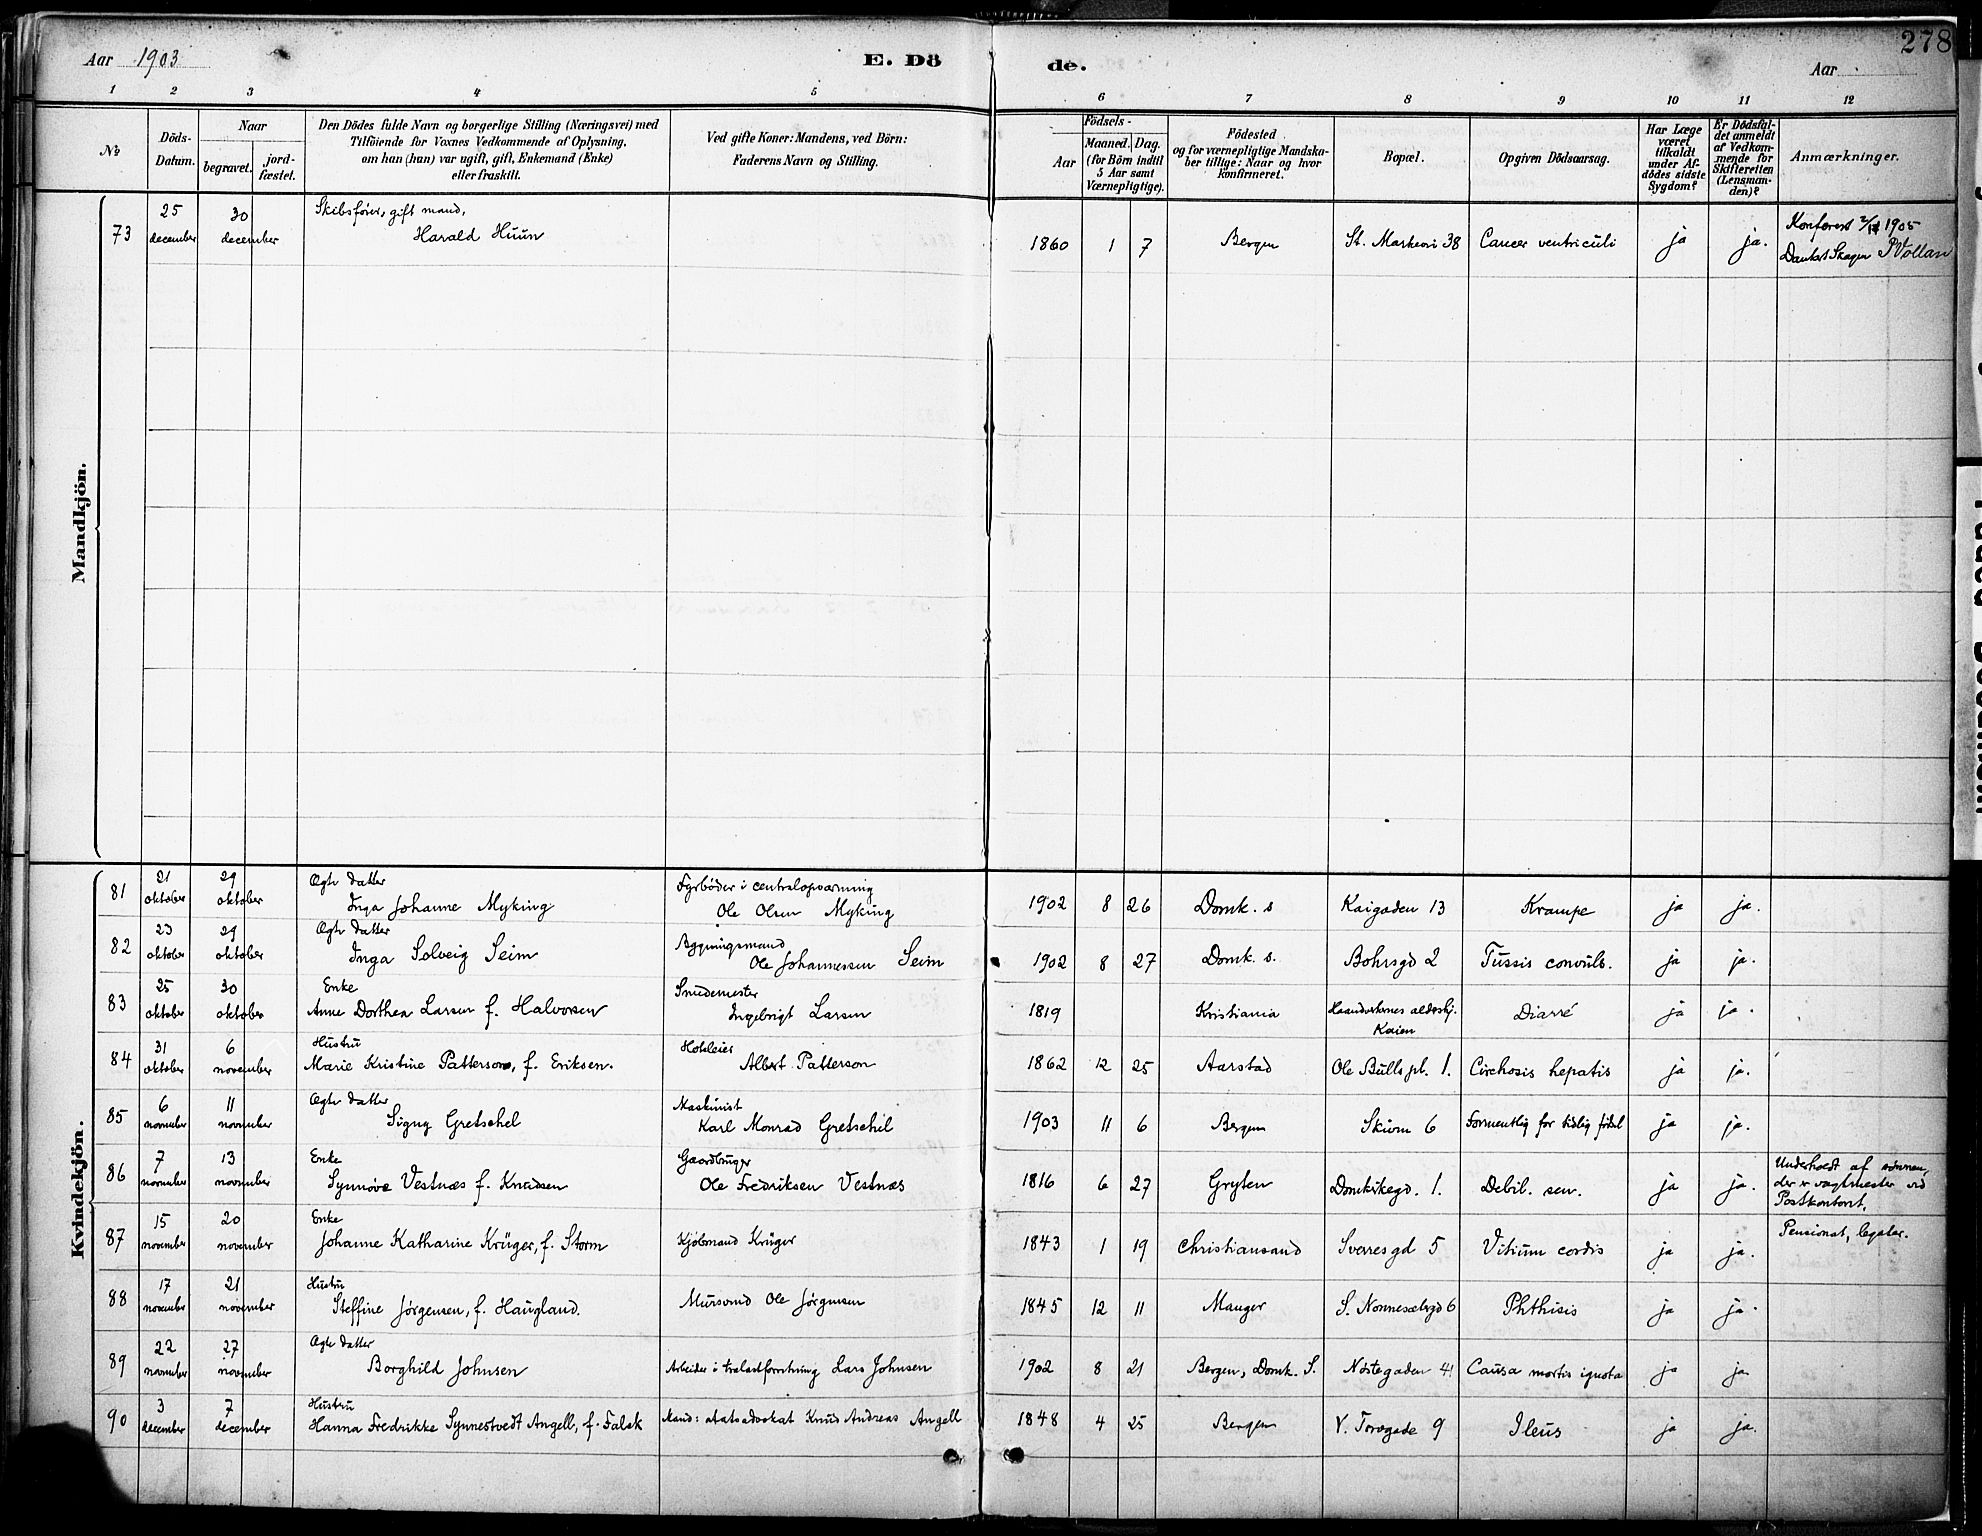 278
Aar 1903
E. Dö
de.
Aar
1 2 3 4 5 6 7 8 9 10 11 12
No
Döds-
Datum.
Naar
begravet.
jord-
fæstet.
Den Dödes fulde Navn og borgerlige Stilling (Næringsvei) med
Tilföiende for Voxnes Vedkommende af Oplysning,
om han (hun) var ugift, gift, Enkemand (Enke)
eller fraskilt.
Ved gifte Koner: Mandens, ved Börn:
Faderens Navn og Stilling.
Födsels-
Aar
Maaned. Dag.
(for Börn indtil
5 Aar samt
Værnepligtige).
Födested
og for værnepligtige Mandska-
ber tillige: Naar og hvor
konfirmeret.
Bopæl.
Opgiven Dödsaarsag.
Har Læge
været
tilkaldt
under Af-
dödes sidste
Sygdom?
Er Dödsfal-
det anmeldt
af Vedkom-
mende for
Skifteretten
(Lensman-
den)?
Anmærkninger.
Mandkjön.
73
25
december
30
december
Skibsfører, gift mand,
Harald Huun
1860 1 7
Bergen
St. Markevei 38
Cancer ventriculi
ja
ja.
Konfereret 1905
Vollan
Kvindekjön.
81
21
oktober
29
oktober
Ægte datter
Inga Johanne Myking
Fyrbøder i centralopvarmning
Ole Olsen Myking
1902 8 26
Domk. s
Kaigaden 13
Krampe
ja
ja.
82
23
oktober
29
oktober
Ægte datter
Inga Solveig Seim
Bygningsmand
Ole Johannessen Seim
1902 8 27
Domk. s.
Bohrsgd 2
Tussis convuls.
ja
ja.
83
25
oktober
30
oktober
Enke
Anne Dorthea Larsen f. Halvorsen
Smedemester
Ingebrigt Larsen
1819
Kristiania
Haandverkernes aldershj.
Kaien
Diarré
ja
ja.
84
31
oktober
6
november
Hustru
Marie Kristine Patterson, f. Eriksen.
Hoteleier
Albert Patterson
1862 12 25
Aarstad
Ole Bulls pl. 1.
Cirrhosis hepatis
ja
ja.
85
6
november
11
november
Ægte datter
Signy Gretschel
Maskinist
Karl Monrad Gretschel
1903 11 6
Bergen
Skivm 6
Formentlig for tidlig fødsel
ja
ja.
86
7
november
13
november
Enke
Synnøve Vestnæs f. Knudsen
Gaardbruger
Ole Fredriksen Vestnæs
1816 6 27
Gryten
Domkirkegd. 1.
Debil. sen.
ja
ja.
Underholdt af sønnen,
der er vagtmester ved
Postkontoret.
87
15
november
20
november
Enke
Johanne Katharine Krüger, f. Storm
Kjøbmand Krüger
1843 1 19
Christiansand
Sverresgd 5
Vitium cordis
ja
ja.
Pensionat, legater.
88
17
november
21
november
Hustru
Steffine Jørgensen, f. Haugland.
Mursvend Ole Jørgensen
1845 12 11
Manger
S. Nonnesætergd 6
Phthisis
ja
ja.
89
22
november
27
november
Ægte datter
Borghild Johnsen
Arbeider i trælastforretning Lars Johnsen
1902 8 21
Bergen, Domk. S.
Nøstegaden 41
Causa mortis ignota
ja
ja
90
3
december
7
december
Hustru
Hanna Fredrikke Synnestvedt Angell, f. Falsk
Mand: statsadvokat Knud Andreas Angell
1848 4 25
Bergen
V. Torvgade 9
Ileus
ja
ja.